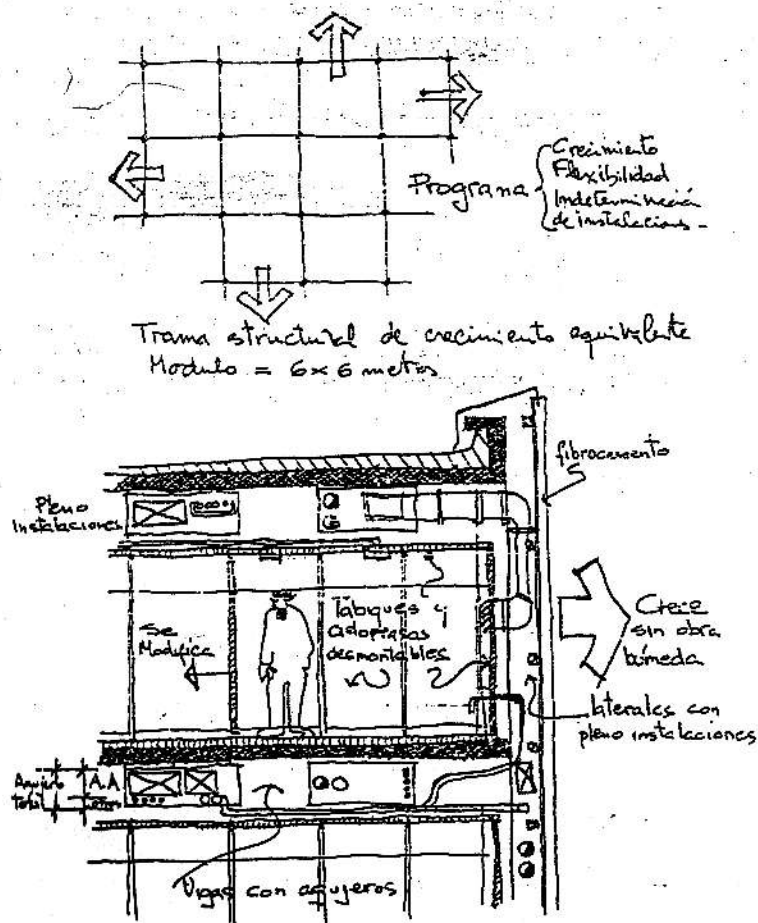 Programa
Crecimiento
Flexibilidad
Indeterminación
de instalacions -
Trama structural de crecimiento equivalente
Modulo = 6×6 metros
fibrocemento
Pleno
Instalaciones
Se
Modifica
Tabiques y
adopisos
desmontables
Crece
sin obra
húmeda
laterales con
pleno instalaciones
A.A
Vigas con agujeros